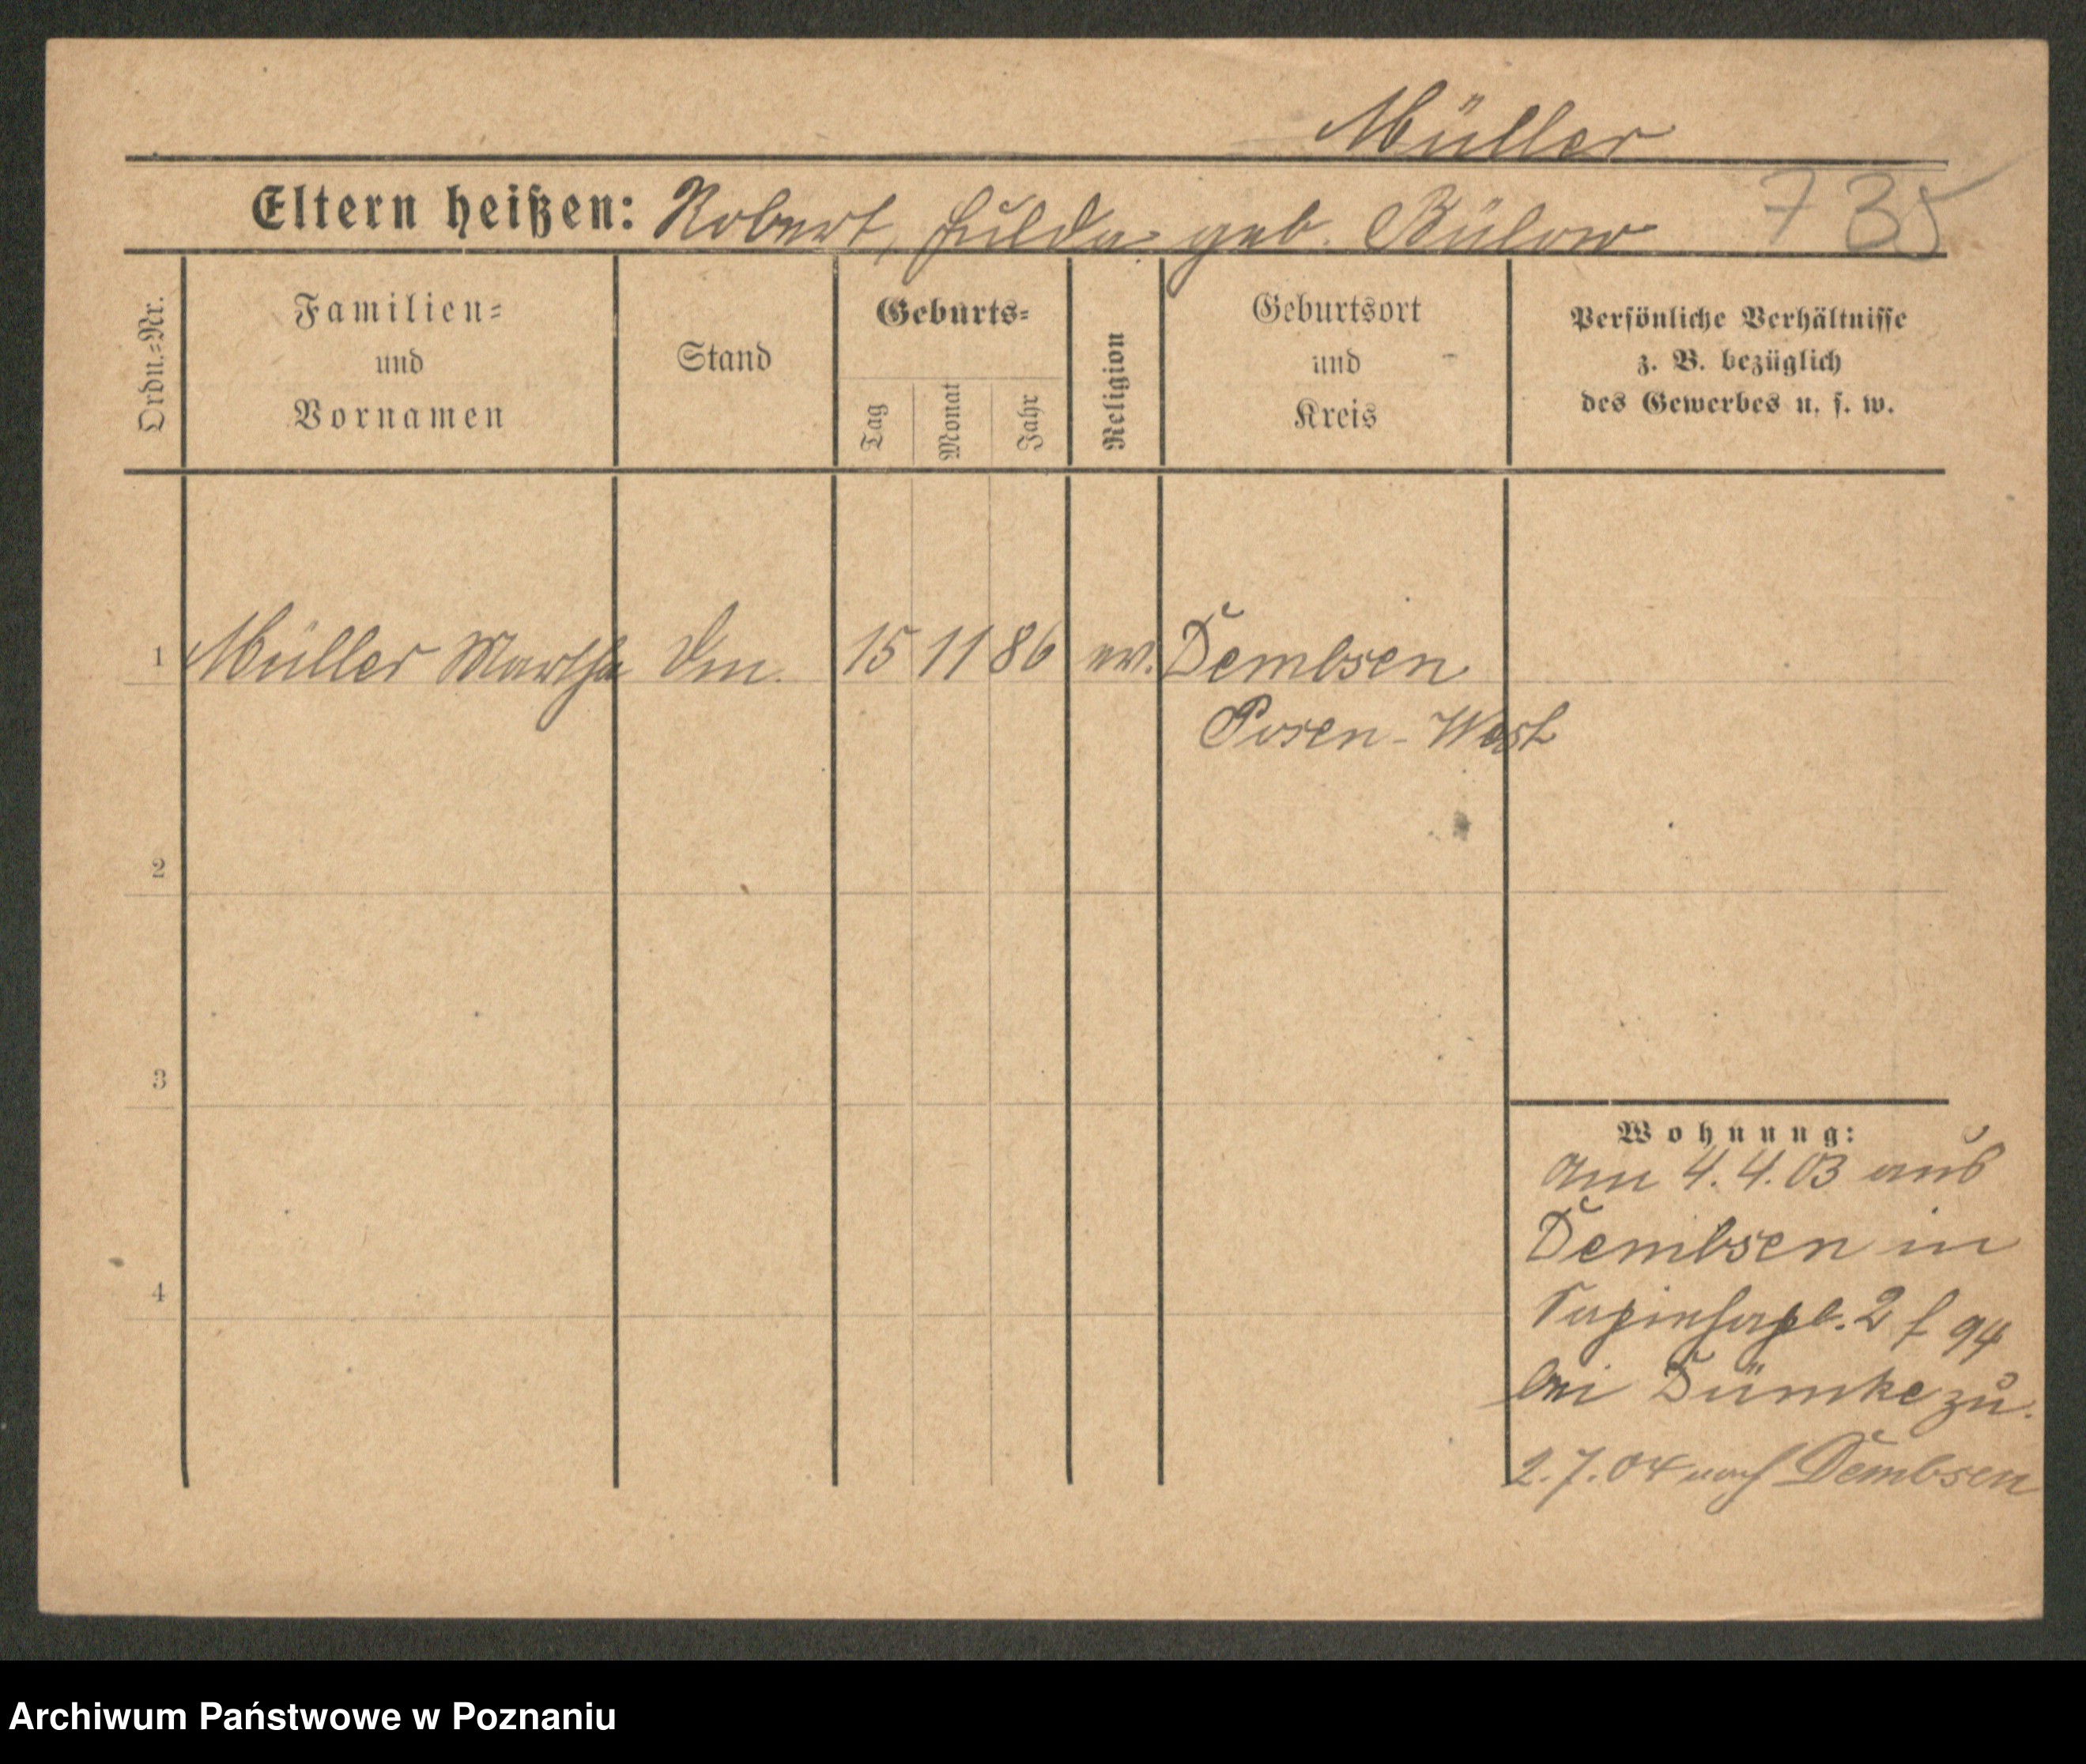 Müller
Eltern heißen: Robert, Hulda geb. Bülow 735
Ordn.=Nr.
Familien=
und
Vornamen
Stand
Geburts=
Tag
Monat
Jahr
Religion
Geburtsort
und
Kreis
Persönliche Verhältnisse
z. B. bezüglich
des Gewerbes u. s. w.
1 Müller Martha 15 11 86 ev. Dembsen
Posen-West
2
3
4
Wohnung:
Am 4.4.03 aus
Dembsen in
2 94
bei Dümke zu.
2.7.04 nach Dembsen
Archiwum Państwowe w Poznaniu